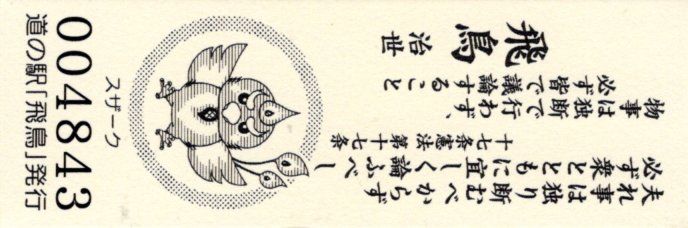 夫れ事は独り断むべからず
必ず衆とともに宜しく論ふべし
十七条憲法 第十七条
物事は独断で行わず、
必ず皆で議論すること
飛鳥 治世
スザーク
004843
道の駅「飛鳥」発行